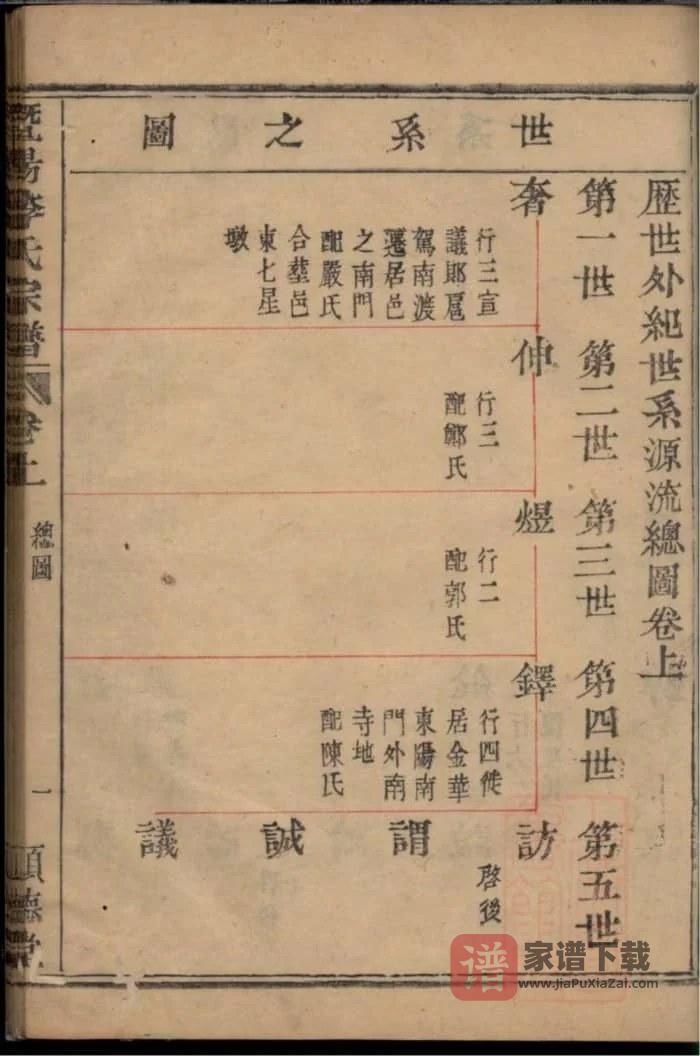 世系之圖
歷世外紀世系源流總圖卷上
第一世
第二世
第三世
第四世
第五世
奢
行三宣
議郎扈
駕南渡
遷居邑
之南門
配嚴氏
合塟邑
東七星
墩
伸
行三
配鄭氏
煜
行二
配郭氏
鐸
行四徙
居金華
東陽南
門外南
寺地
配陳氏
訪
啓後
謂
誠
議
暨陽李氏宗譜
卷上
總圖
一
家谱下载
谱
www.JiaPuXiaZai.com